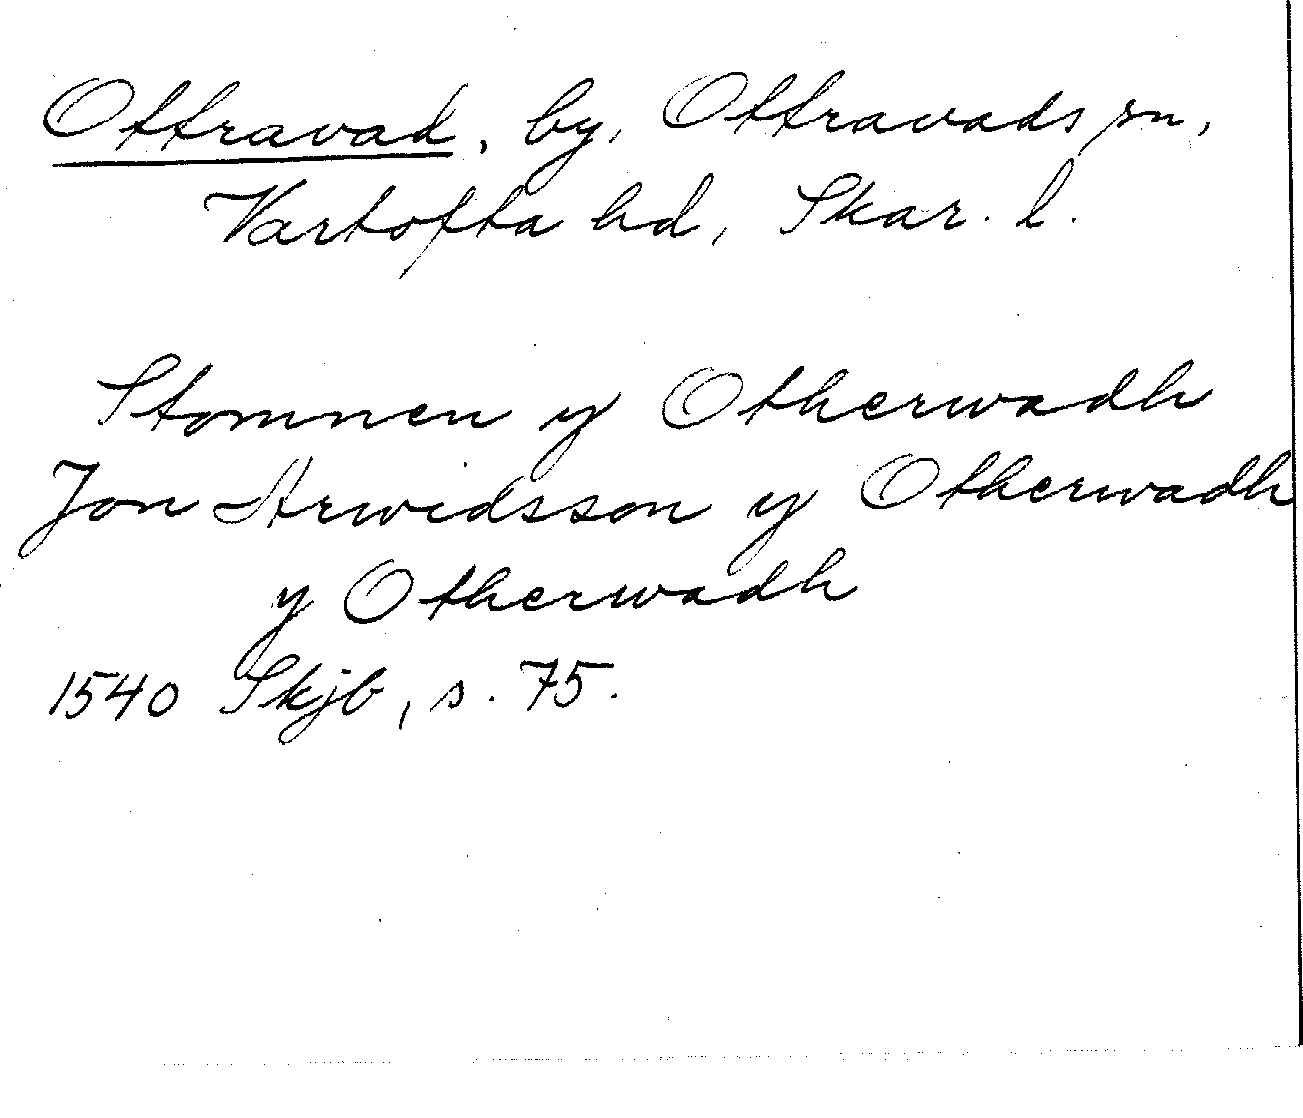 Ottravad, by, Ottravads sn,
Vartofta hd, Skar. l.
Stomnen y Otherwadh
Jon Arwidsson y Otherwadh
y Otherwadh
1540 Skjb, s. 75.